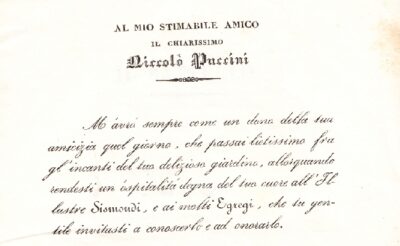 AL MIO STIMABILE AMICO
IL CHIARISSIMO
Niccolò Puccini
M'avrò sempre come un dono della tua
amicizia quel giorno, che passai lietissimo fra
gl'incanti del tuo delizioso giardino, allorquando
rendesti un ospitalità degna del tuo cuore all'Il-
lustre Sismondi, e ai molti Egregi, che tu gen-
tile invitasti a conoscerlo e ad onorarlo.